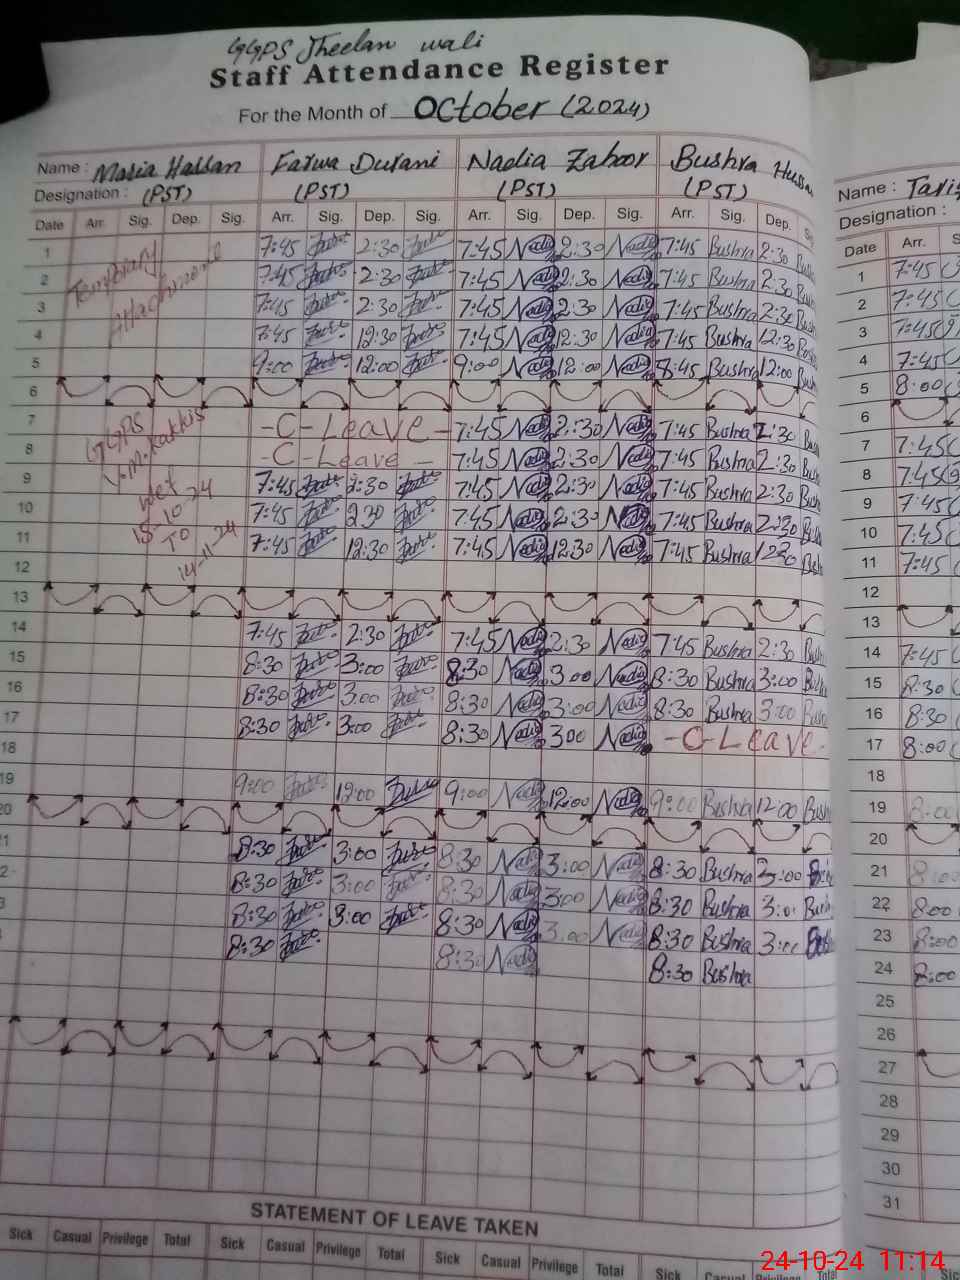 GGPS Jheelan wali
Staff Attendance Register
For the Month of October (2024)
Name : Maria Hassan Farwa Durani Nadia Zahoor Bushra Hussa
Designation : (PST) (PST) (PST) (PST)
Date Arr. Sig. Dep. Sig. Arr. Sig. Dep. Sig. Arr. Sig. Dep. Sig. Arr. Sig. Dep.
1 7:45 2:30 7:45 Nadia 2:30 Nadia 7:45 Bushra 2:30
2 7:45 2:30 7:45 Nadia 2:30 Nadia 7:45 Bushra 2:30
3 7:45 2:30 7:45 Nadia 2:30 Nadia 7:45 Bushra 2:30
4 7:45 12:30 7:45 Nadia 12:30 Nadia 7:45 Bushra 12:30
5 9:00 12:00 9:00 Nadia 12:00 Nadia 8:45 Bushra 12:00
Temporary
Attachment
6
7 -C-Leave- 7:45 Nadia 2:30 Nadia 7:45 Bushra 2:30
8 -C-Leave- 7:45 Nadia 2:30 Nadia 7:45 Bushra 2:30
9 7:45 2:30 7:45 Nadia 2:30 Nadia 7:45 Bushra 2:30
10 7:45 2:30 7:45 Nadia 2:30 Nadia 7:45 Bushra 2:30
11 7:45 12:30 7:45 Nadia 12:30 Nadia 7:45 Bushra 12:30
GGPS
wef
15-10-24
TO
14-11-24
12
13
14 7:45 2:30 7:45 Nadia 2:30 Nadia 7:45 Bushra 2:30
15 8:30 3:00 8:30 Nadia 3:00 Nadia 8:30 Bushra 3:00
16 8:30 3:00 8:30 Nadia 3:00 Nadia 8:30 Bushra 3:00
17 8:30 3:00 8:30 Nadia 3:00 Nadia -C-Leave-
18
19 9:00 12:00 9:00 Nadia 12:00 Nadia 9:00 Bushra 12:00 Bush
20
8:30 3:00 8:30 Nadia 3:00 Nadia 8:30 Bushra 3:00
8:30 3:00 8:30 Nadia 3:00 Nadia 8:30 Bushra 3:00
8:30 3:00 8:30 Nadia 3:00 Nadia 8:30 Bushra 3:00
8:30 8:30 Nadia 8:30 Bushra
STATEMENT OF LEAVE TAKEN
Sick Casual Privilege Total Sick Casual Privilege Total Sick Casual Privilege Total Sick Casual Privilege Total
Name :
Designation :
Date Arr.
1 7:45
2 7:45
3 7:45
4 7:45
5 8:00
6
7 7:45
8 7:45
9 7:45
10 7:45
11 7:45
12
13
14 7:45
15 8:30
16 8:30
17 8:00
18
19 8:00
20
21 8:00
22 8:00
23 8:00
24 8:00
25
26
27
28
29
30
31
24-10-24 11:14